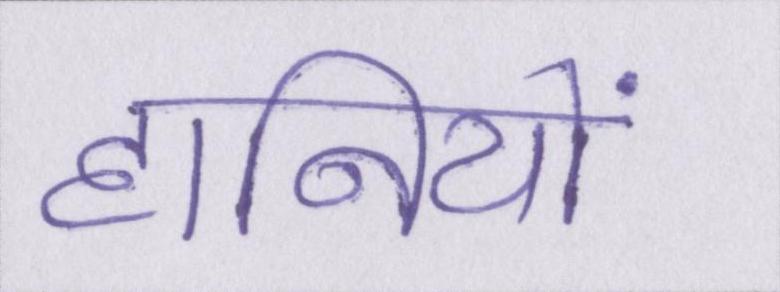 हानियों